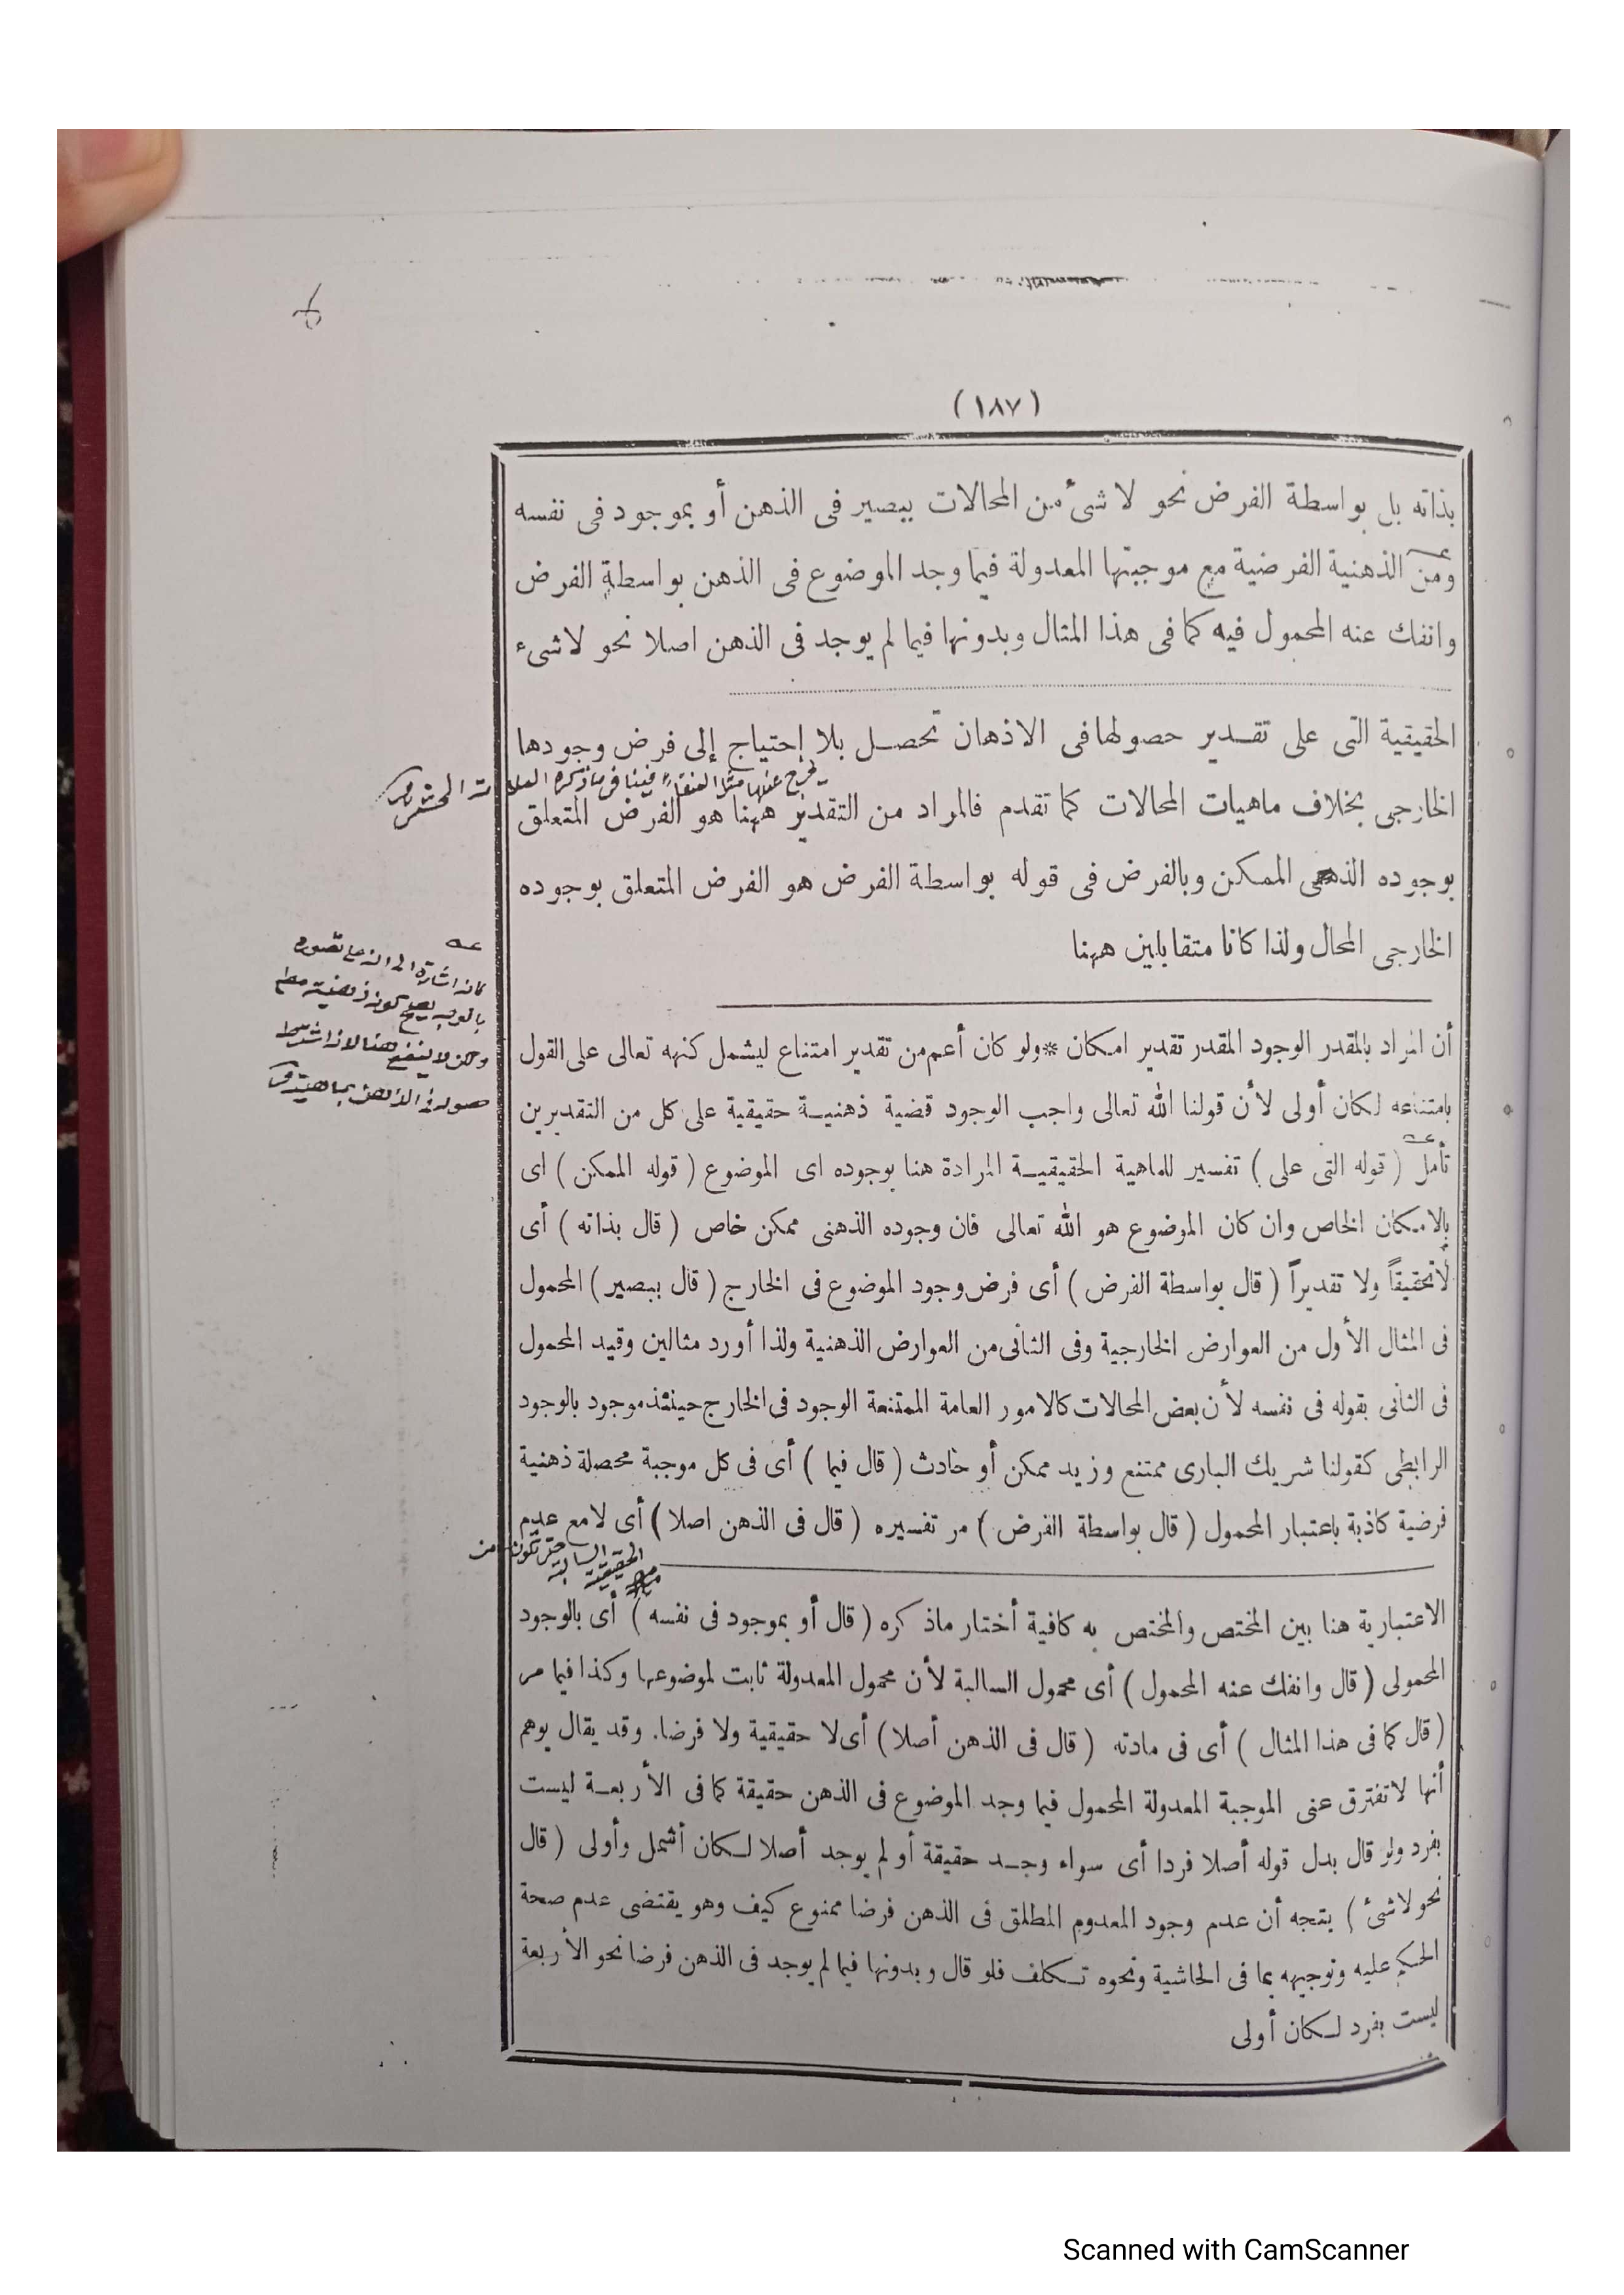 (١٨٧)
بذاته بل بواسطة الفرض نحو لا شئ من المحالات ببصير فى الذهن أو بموجود فى نفسه
ومن الذهنية الفرضية مع موجبتها المعدولة فيما وجد الموضوع فى الذهن بواسطة الفرض
وانفك عنه المحمول فيه كما فى هذا المثال وبدونها فيما لم يوجد فى الذهن اصلا نحو لا شىء
الحقيقية التى على تقدير حصولها فى الاذهان تحصل بلا إحتياج إلى فرض وجودها
الخارجى بخلاف ماهيات المحالات كما تقدم فالمراد من التقدير ههنا هو الفرض المتعلق
بوجوده الذهنى الممكن وبالفرض فى قوله بواسطة الفرض هو الفرض المتعلق بوجوده
الخارجى المحال ولذا كانا متقابلين ههنا
أن المراد بالمقدر الوجود المقدر تقدير امكان * ولو كان أعم من تقدير امتناع ليشمل كنهه تعالى على القول
بامتناعه لكان أولى لأن قولنا الله تعالى واجب الوجود قضية ذهنية حقيقية على كل من التقديرين
تأمل ( قوله التى على ) تفسير للماهية الحقيقية المرادة هنا بوجوده اى الموضوع ( قوله الممكن ) اى
بالامكان الخاص وان كان الموضوع هو الله تعالى فان وجوده الذهنى ممكن خاص ( قال بذاته ) أى
لا تحقيقاً ولا تقديراً ( قال بواسطة الفرض ) أى فرض وجود الموضوع فى الخارج ( قال ببصير ) المحمول
فى المثال الأول من العوارض الخارجية وفى الثانى من العوارض الذهنية ولذا أورد مثالين وقيد المحمول
فى الثانى بقوله فى نفسه لأن بعض المحالات كالامور العامة الممتنعة الوجود فى الخارج حينئذ موجود بالوجود
الرابطى كقولنا شريك البارى ممتنع وزيد ممكن أو حادث ( قال فيما ) أى فى كل موجبة محصلة ذهنية
فرضية كاذبة باعتبار المحمول ( قال بواسطة الفرض ) مر تفسيره ( قال فى الذهن اصلا ) أى لا مع عدم
الاعتبارية هنا بين المختص والمختص به كافية أختار ماذكره ( قال أو بموجود فى نفسه ) أى بالوجود
المحمولى ( قال وانفك عنه المحمول ) أى محمول السالبة لأن محمول المعدولة ثابت لموضوعها وكذا فيما مر
( قال كما فى هذا المثال ) أى فى مادته ( قال فى الذهن أصلا ) أى لا حقيقية ولا فرضا. وقد يقال يوهم
أنها لا تفترق عنى الموجبة المعدولة المحمول فيما وجد الموضوع فى الذهن حقيقة كما فى الأربعة ليست
بفرد ولو قال بدل قوله أصلا فردا أى سواء وجد حقيقة أو لم يوجد أصلا لكان أشمل وأولى ( قال
نحو لا شئ ) يتجه أن عدم وجود المعدوم المطلق فى الذهن فرضا ممنوع كيف وهو يقتضى عدم صحة
الحكم عليه وتوجيهه بما فى الحاشية ونحوه تكلف فلو قال وبدونها فيما لم يوجد فى الذهن فرضا نحو الأربعة
ليست بفرد لكان أولى
Scanned with CamScanner